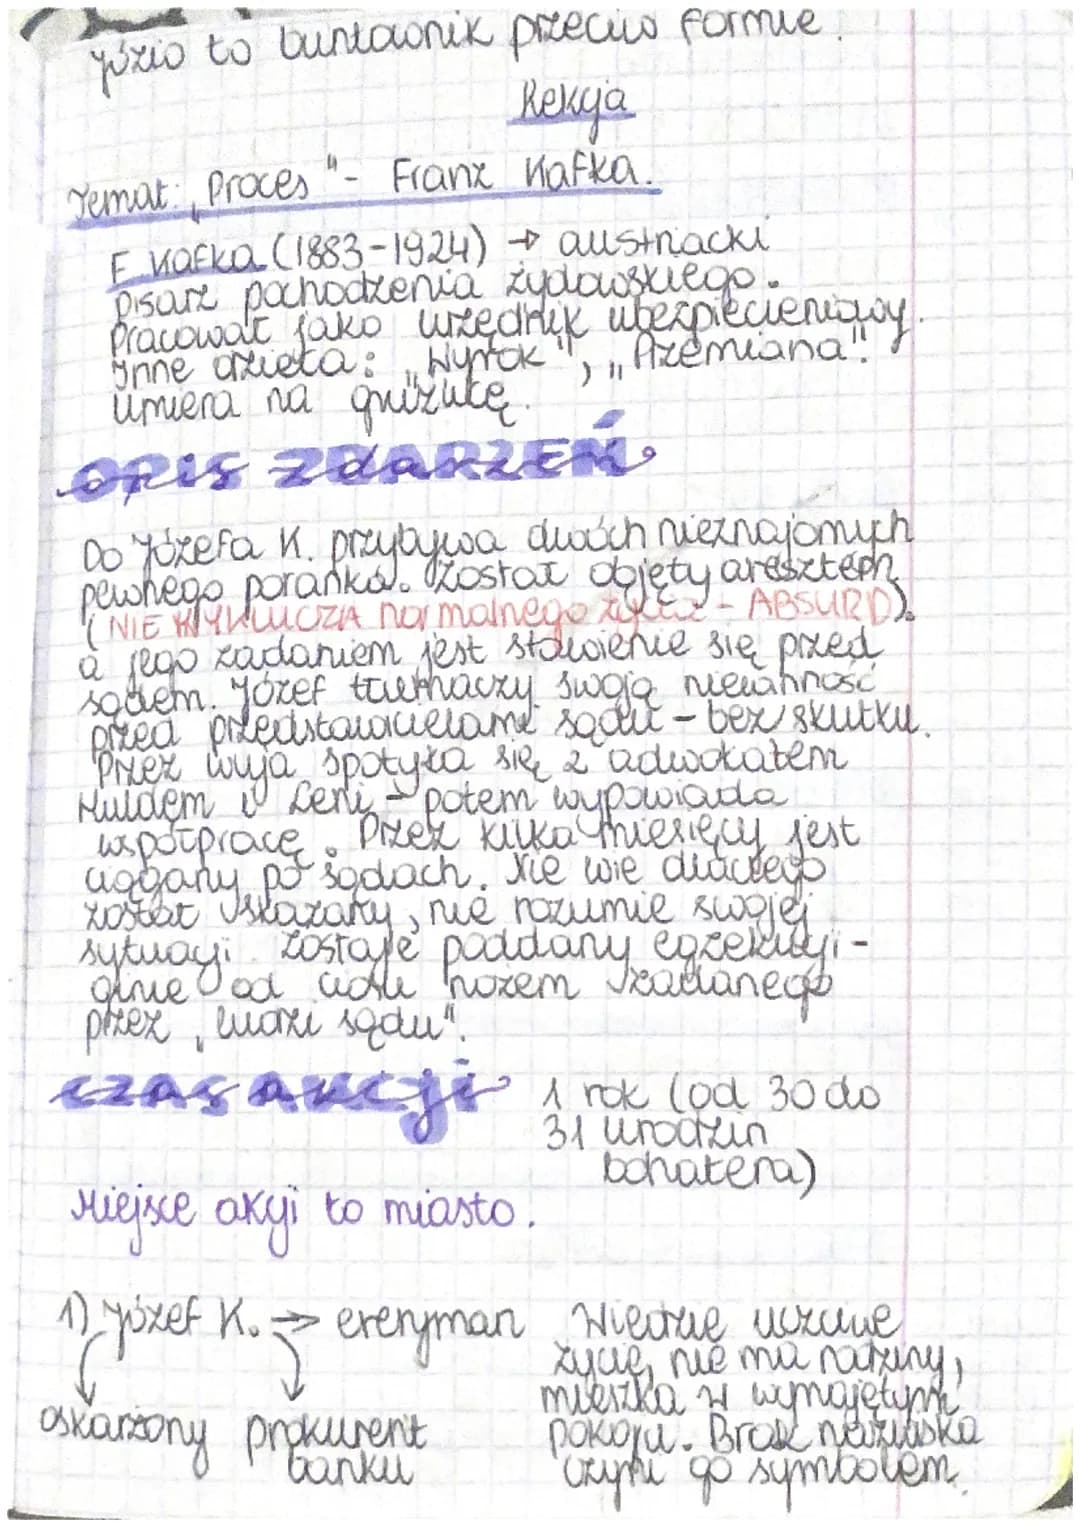 Józio to buntownik przeciw formie.
Lekcja
Temat: „Proces" - Franz Kafka.
F. Kafka (1883-1924) → austriacki
pisarz pochodzenia żydowskiego.
Pracował jako urzędnik ubezpieczeniowy.
Inne dzieła: „Wyrok", „Przemiana".
Umiera na gruźlicę.
OPIS ZDARZEŃ
Do Józefa K. przybywa dwóch nieznajomych
pewnego poranka. Został objęty aresztem
(NIE WYKLUCZA normalnego życia - ABSURD).
a jego zadaniem jest stawienie się przed
sądem. Józef tłumaczy swoją niewinność
przed przedstawicielami sądu - bez skutku.
Przez wuja spotyka się z adwokatem
Huldem i Leni - potem wypowiada
współpracę. Przez kilka miesięcy jest
ciągany po sądach. Nie wie dlaczego
został skazany, nie rozumie swojej
sytuacji. Zostaje poddany egzekucji -
ginie od ciosu nożem zadanego
przez „ludzi sądu".
CZAS AKCJI 1 rok (od 30 do
31 urodzin
bohatera)
Miejsce akcji to miasto.
1) Józef K. → everyman
oskarżony prokurent
banku
Wiedzie uczciwe
życie, nie ma rodziny,
mieszka w wynajętym
pokoju. Brak nazwiska
czyni go symbolem.